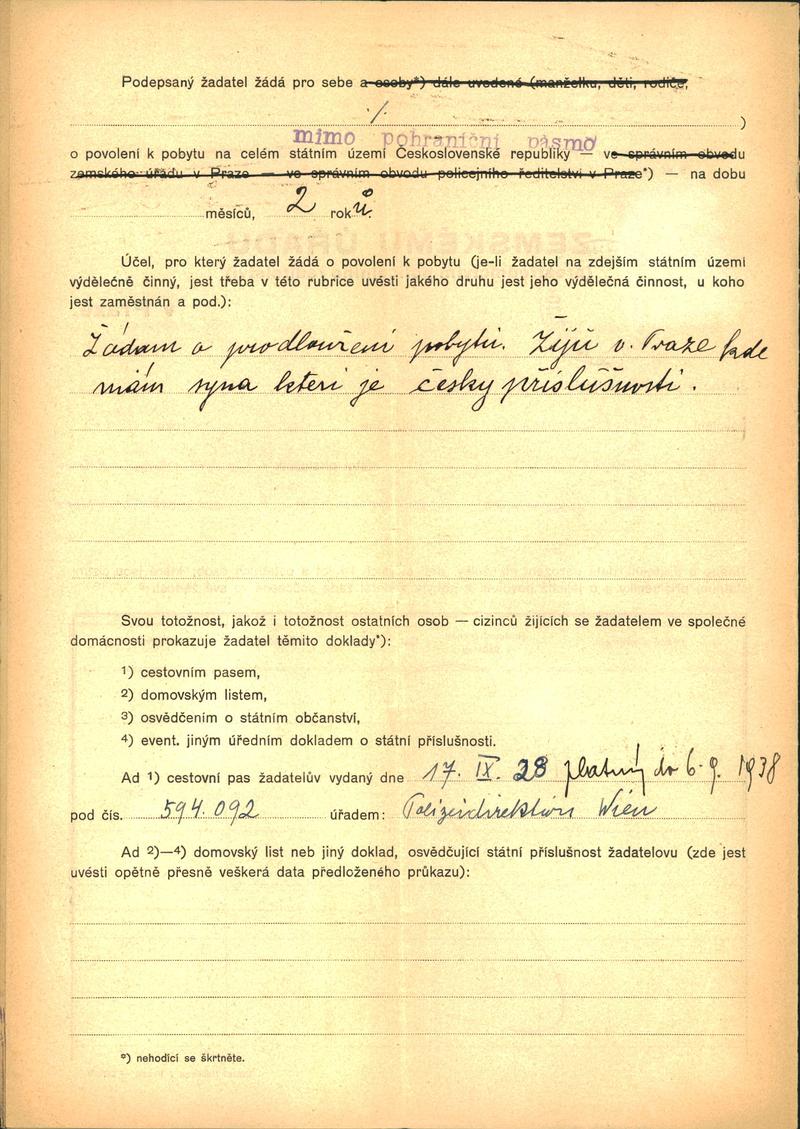 Podepsaný žadatel žádá pro sebe a osoby*) dále uvedené (manželku, děti, rodiče,
./. )
mimo pohraniční pásmo
o povolení k pobytu na celém státním území Československé republiky — ve správním obvodu
zemského úřadu v Praze — ve správním obvodu policejního ředitelství v Praze*) — na dobu
měsíců, 2 roků.
Účel, pro který žadatel žádá o povolení k pobytu (je-li žadatel na zdejším státním území
výdělečně činný, jest třeba v této rubrice uvésti jakého druhu jest jeho výdělečná činnost, u koho
jest zaměstnán a pod.):
Žádam o prodloužení pobytu. Žijú v. Praze kde
mám syna kteri je česky příslušnosti.
Svou totožnost, jakož i totožnost ostatních osob — cizinců žijících se žadatelem ve společné
domácnosti prokazuje žadatel těmito doklady*):
1) cestovním pasem,
2) domovským listem,
3) osvědčením o státním občanství,
4) event. jiným úředním dokladem o státní příslušnosti.
Ad 1) cestovní pas žadatelův vydaný dne 17. IX. 28 platný do 6. 9. 1938
pod čís. 594.092 úřadem: Polizeidirektion Wien
Ad 2)—4) domovský list neb jiný doklad, osvědčující státní příslušnost žadatelovu (zde jest
uvésti opětně přesně veškerá data předloženého průkazu):
*) nehodící se škrtněte.